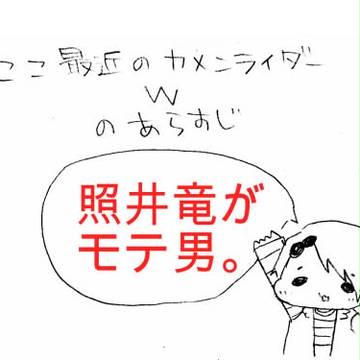 ここ最近のカメンライダー
W
のあらすじ
照井竜が
モテ男。